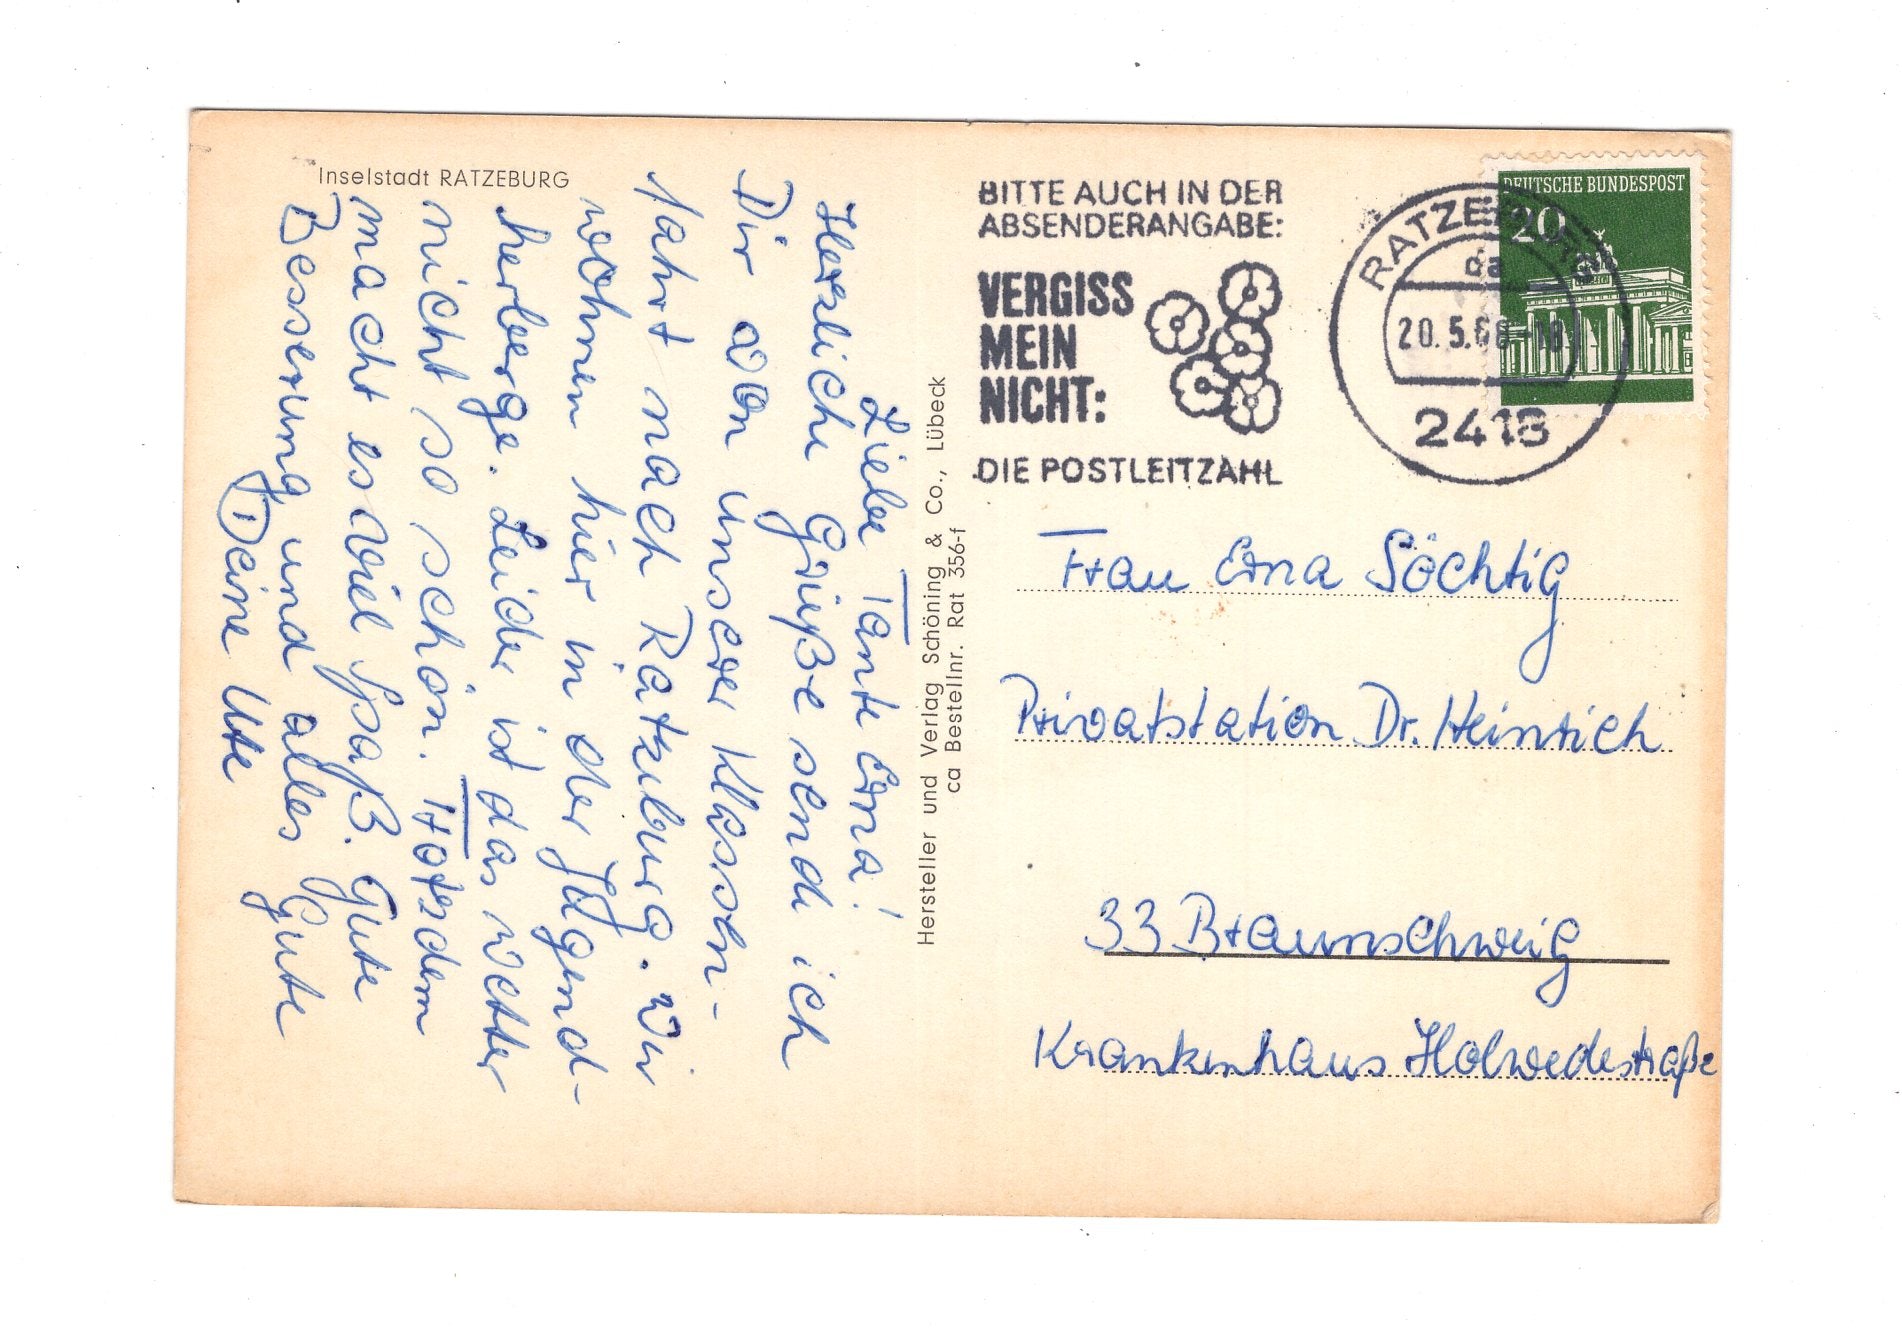 Inselstadt RATZEBURG
Liebe Tante Erna!
Herzliche Grüße sende ich
Dir von unserer Klassen-
fahrt nach Ratzeburg. Wir
wohnen hier in der Jugend-
herberge. Leider ist das Wetter
nicht so schön. Trotzdem
macht es viel Spaß. Gute
Besserung und alles Gute
Deine Ute
Hersteller und Verlag Schöning & Co., Lübeck
ca Bestellnr. Rat 356-f
BITTE AUCH IN DER
ABSENDERANGABE:
VERGISS
MEIN
NICHT:
DIE POSTLEITZAHL
RATZEBURG
2418
DEUTSCHE BUNDESPOST
20
Frau Erna Söchtig
Privatstation Dr. Heinrich
33 Braunschweig
Krankenhaus Holwedestraße